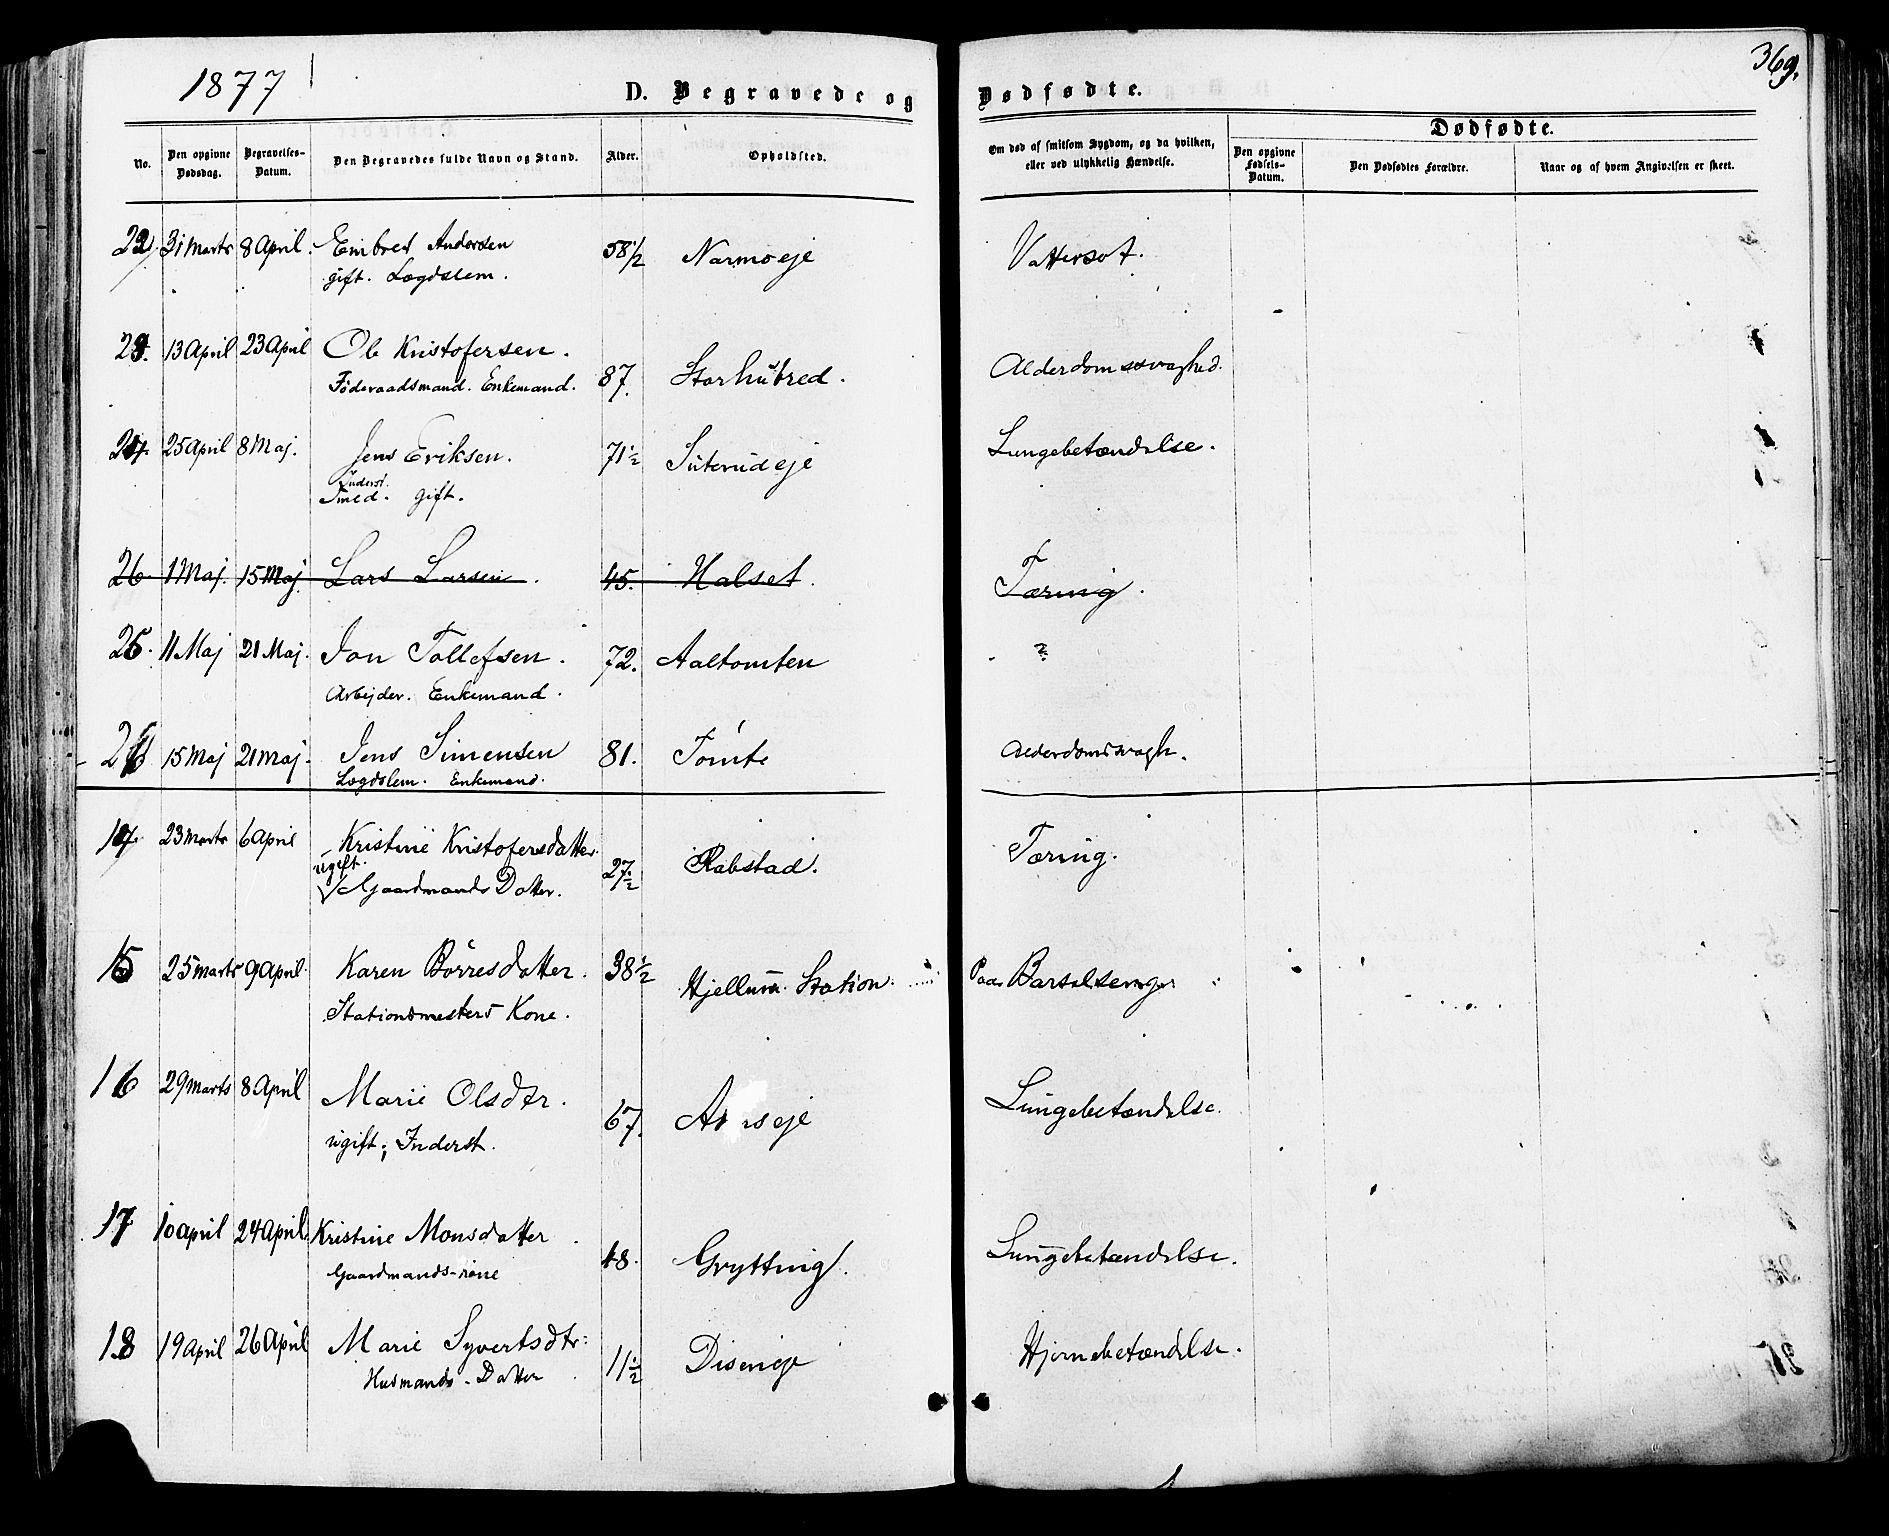 1877
369.
D. Begravede og Dødfødte.
No. Den opgivne Dødsdag. Begravelses-Datum. Den Begravedes fulde Navn og Stand. Alder. Opholdsted. Om død af smitsom Sygdom, og da hvilken, eller ved ulykkelig Hændelse.
Dødfødte.
Den opgivne Fødsels-Datum. Den Dødfødtes Forældre. Naar og af hvem Angivelsen er skeet.
22 31 Marts 8 April. Embret Andersen 58 1/2 Narmoeje Vattersot.
gift. Lægdslem.
23. 13 April 23 April Ole Kristofersen. 87. Storhubred. Alderdomssvaghed.
Föderaadsmand. Enkemand.
24. 25 April 8 Maj. Jens Eriksen. 71 1/2 Suterudeje Lungebetændelse.
Inderst.
Smed. gift.
26. 1 Maj. 15 Maj. Lars Larsen. 45. Halset. Tæring.
25. 11 Maj 21 Maj. Jon Tollefsen. 72. Aaltomten ?
Arbejder. Enkemand.
26 15 Maj 21 Maj. Jens Simensen 81. Tomte Alderdomssvagh.
Lægdslem. Enkemand.
14 23 Marts 6 April Kristine Kristofersdatter. 27 1/2 Rabstad. Tæring.
ugift.
Gaardmands Datter.
15 25 Marts 9 April. Karen Börresdatter. 38 1/2 Hjellum Station. Paa Barselseng
Stationsmesters Kone.
16 29 Marts 8 April Marie Olsdtr. 67. Lungebetændelse.
ugift; Inderst.
17 10 April 24 April. Kristine Monsdatter. 48. Grytting. Lungebetændelse.
Gaardmands-kone
18 19 April 26 April Marie Syvertsdtr: 11 1/2 Diseneje Hjernebetændelse.
Husmands-Datter